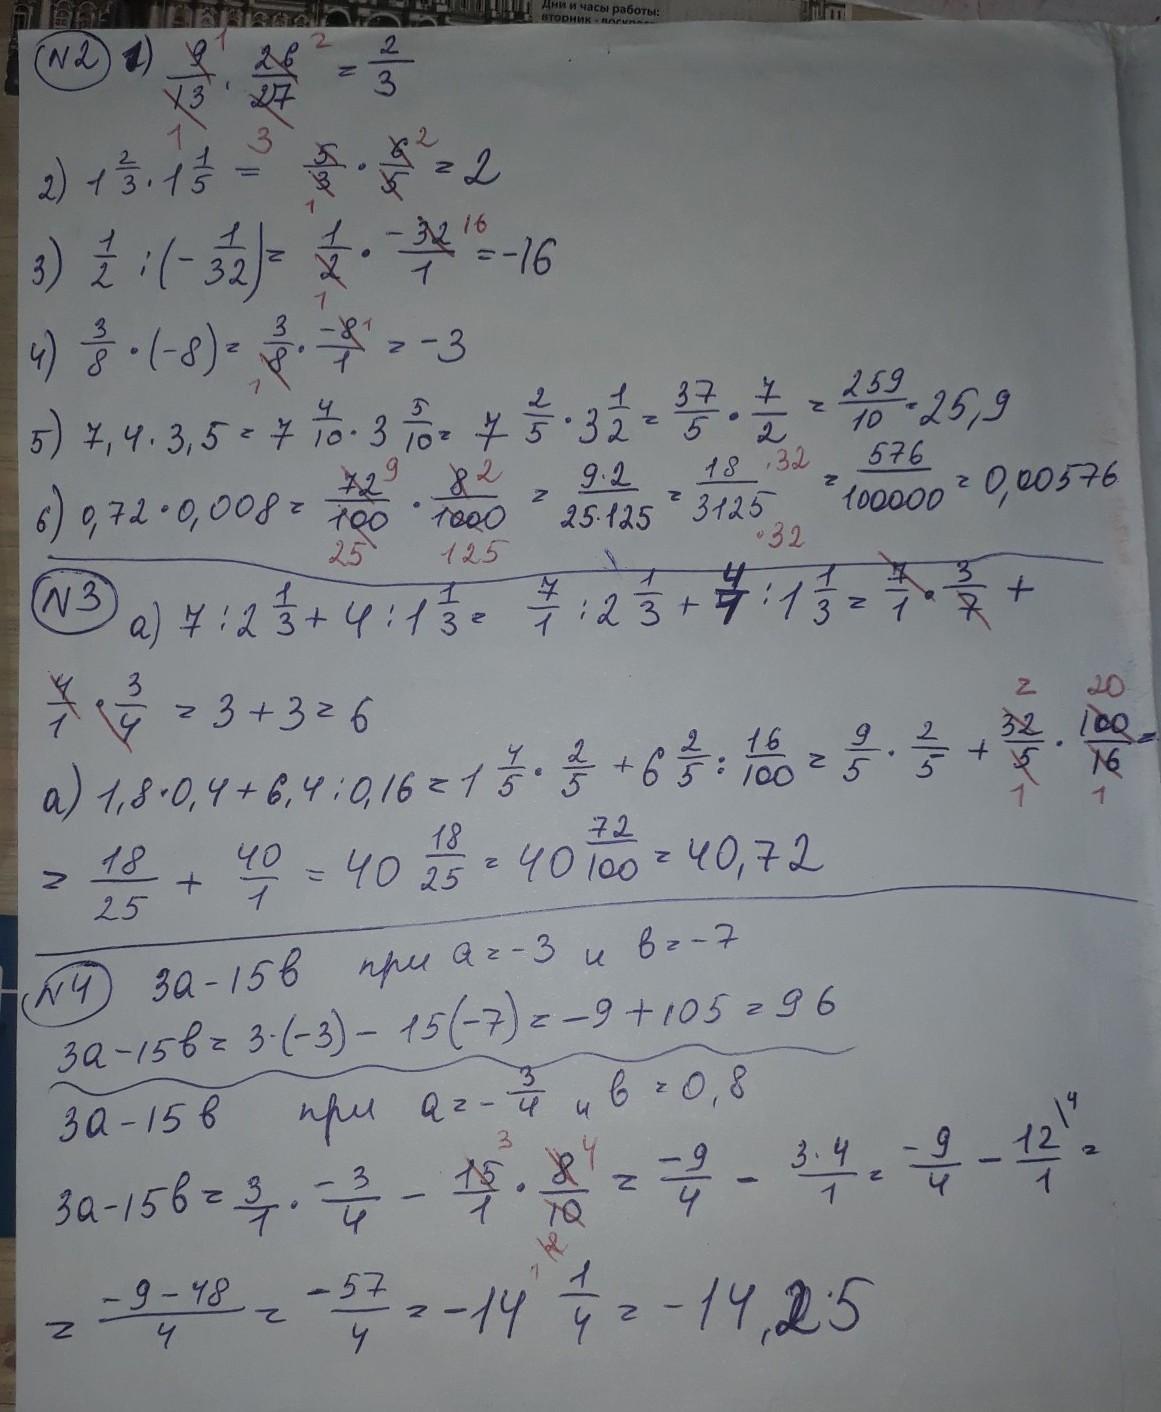 Дни и часы работы:
вторник - воскрес
N2 1) 9/13 · 26/27 = 2/3
2) 1 2/3 · 1 1/5 = 5/3 · 6/5 = 2
3) 1/2 : (- 1/32) = 1/2 · -32/1 = -16
4) 3/8 · (-8) = 3/8 · -8/1 = -3
5) 7,4 · 3,5 = 7 4/10 · 3 5/10 = 7 2/5 · 3 1/2 = 37/5 · 7/2 = 259/10 = 25,9
6) 0,72 · 0,008 = 72/100 · 8/1000 = 9·2/25·125 = 18/3125 ·32/·32 = 576/100000 = 0,00576
N3 а) 7 : 2 1/3 + 4 : 1 1/3 = 7/1 : 2 1/3 + 4/1 : 1 1/3 = 7/1 · 3/7 +
4/1 · 3/4 = 3 + 3 = 6
а) 1,8 · 0,4 + 6,4 : 0,16 = 1 4/5 · 2/5 + 6 2/5 : 16/100 = 9/5 · 2/5 + 32/5 · 100/16 =
= 18/25 + 40/1 = 40 18/25 = 40 72/100 = 40,72
N4 3а - 15в при а = -3 и в = -7
3а - 15в = 3·(-3) - 15(-7) = -9 + 105 = 96
3а - 15в при а = - 3/4 и в = 0,8
3а - 15в = 3/1 · -3/4 - 15/1 · 8/10 = -9/4 - 3·4/1 = -9/4 - 12/1 \4 =
= -9-48/4 = -57/4 = -14 1/4 = -14,25